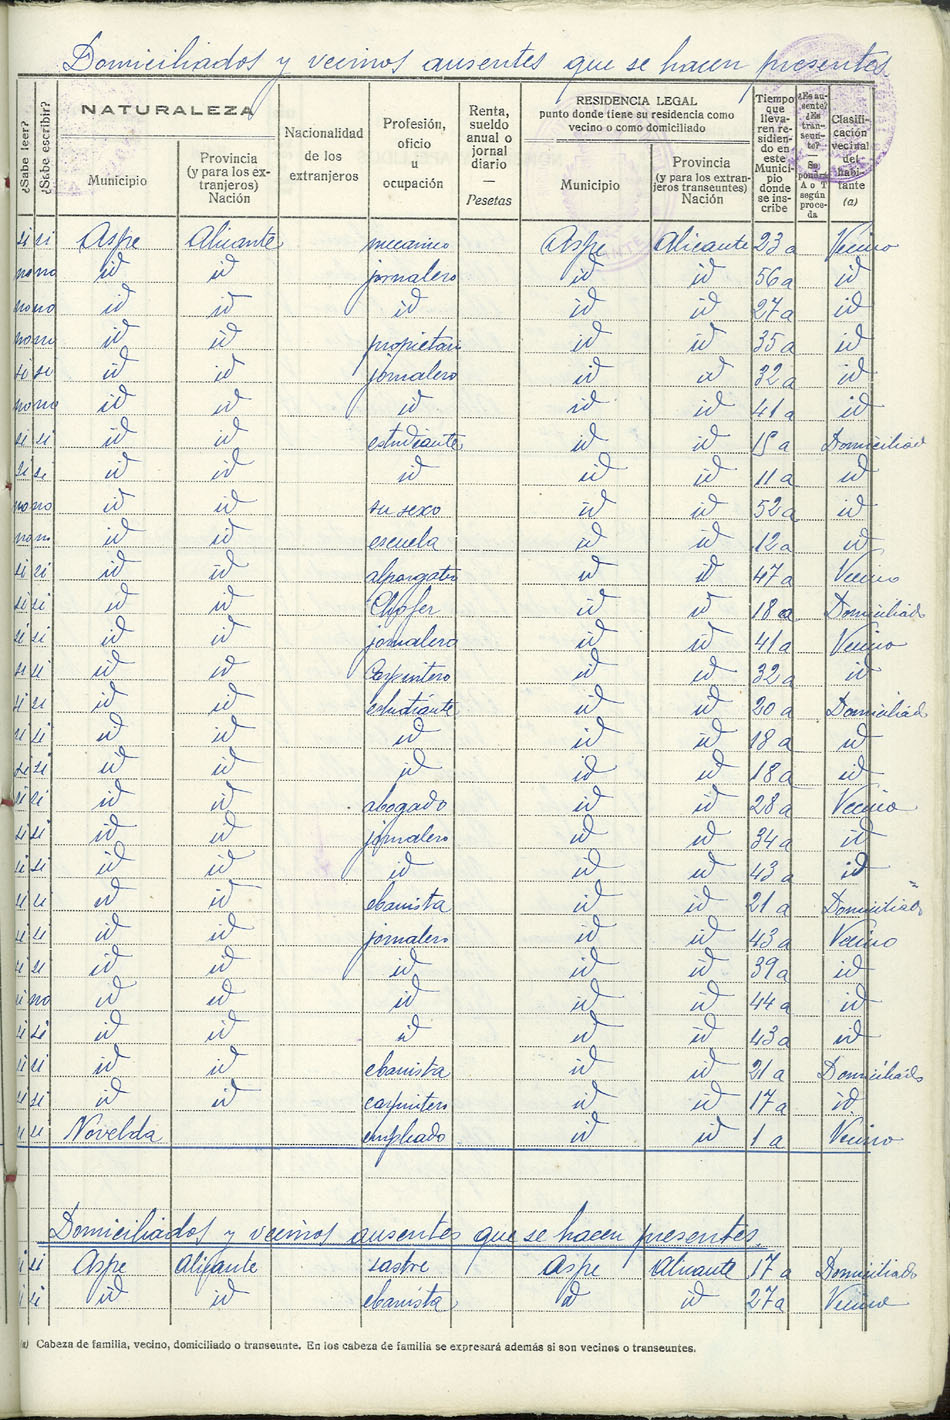 Domiciliados y vecinos ausentes que se hacen presentes
¿Sabe leer? ¿Sabe escribir? NATURALEZA Municipio Provincia (y para los extranjeros) Nación Nacionalidad de los extranjeros Profesión, oficio u ocupación Renta, sueldo anual o jornal diario — Pesetas RESIDENCIA LEGAL punto donde tiene su residencia como vecino o como domiciliado Municipio Provincia (y para los extranjeros transeuntes) Nación Tiempo que llevaren residiendo en este Municipio donde se inscribe ¿Es ausente? ¿Es transeunte? — Se pondrá A o T según proceda Clasificación vecinal del habitante (a)
si si Aspe Alicante mecanico Aspe Alicante 23 a Vecino
no no id id jornalero id id 56 a id
no no id id id id id 27 a id
no no id id propietari id id 35 a id
si si id id jornalero id id 32 a id
no no id id id id id 41 a id
si si id id estudiante id id 15 a Domiciliad
si si id id id id id 11 a id
no no id id su sexo id id 52 a id
no no id id escuela id id 12 a id
si si id id alpargater id id 47 a Vecino
si si id id Chofer id id 18 a Domiciliado
si si id id jornalero id id 41 a Vecino
si si id id Carpintero id id 32 a id
si si id id estudiante id id 20 a Domiciliad
si si id id id id id 18 a id
si si id id id id id 18 a id
si si id id abogado id id 28 a Vecino
si si id id jornalero id id 34 a id
si si id id id id id 43 a id
si si id id ebanista id id 21 a Domiciliado
si si id id jornalero id id 43 a Vecino
si si id id id id id 39 a id
si no id id id id id 44 a id
si si id id id id id 43 a id
si si id id ebanista id id 21 a Domiciliado
si si id id carpintero id id 17 a id
si si Novelda empleado id id 1 a Vecino
Domiciliados y vecinos ausentes que se hacen presentes.
si si Aspe Alicante sastre Aspe Alicante 17 a Domiciliado
si si id id ebanista id id 27 a Vecino
(a) Cabeza de familia, vecino, domiciliado o transeunte. En los cabeza de familia se expresará además si son vecinos o transeuntes.